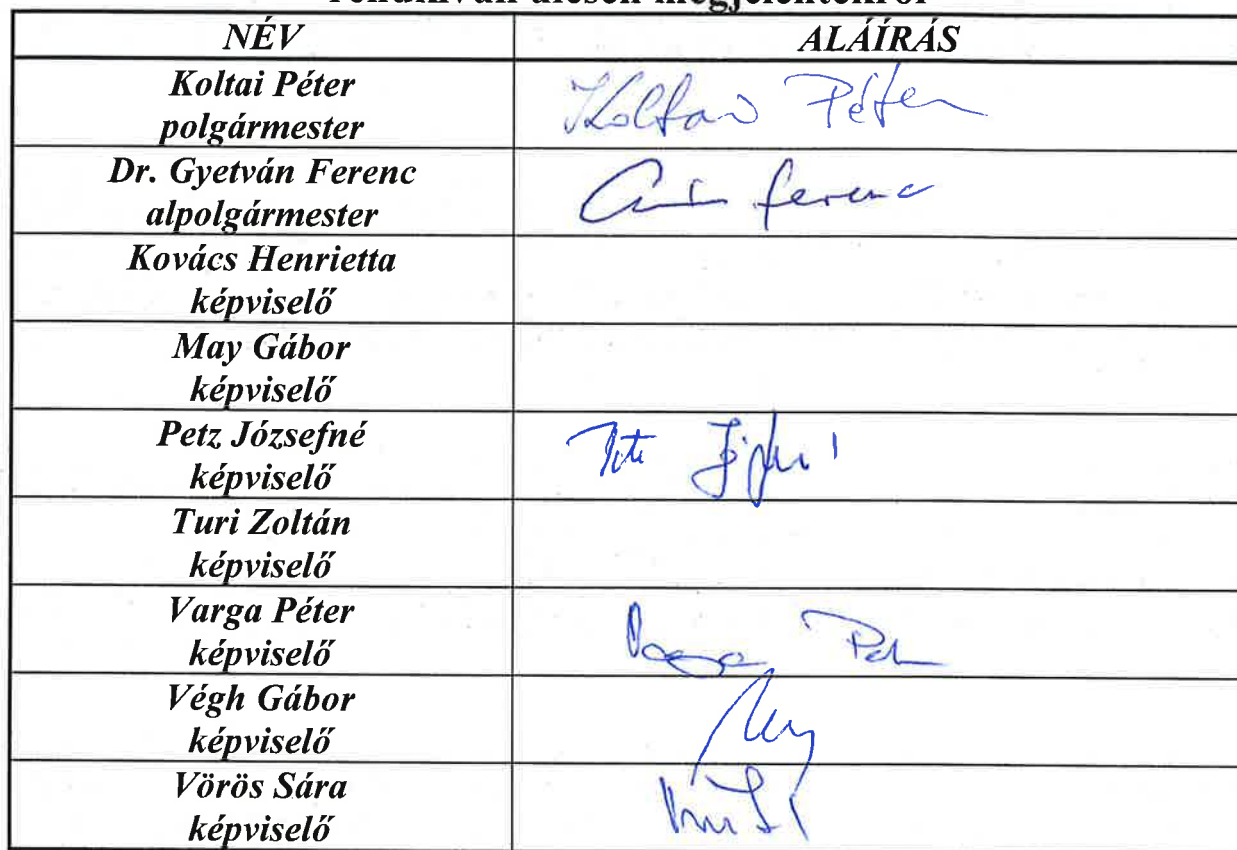 NÉV ALÁÍRÁS
Koltai Péter
polgármester
Koltai Péter
Dr. Gyetván Ferenc
alpolgármester
Ferenc
Kovács Henrietta
képviselő
May Gábor
képviselő
Petz Józsefné
képviselő
Turi Zoltán
képviselő
Varga Péter
képviselő
Varga Péter
Végh Gábor
képviselő
Vörös Sára
képviselő